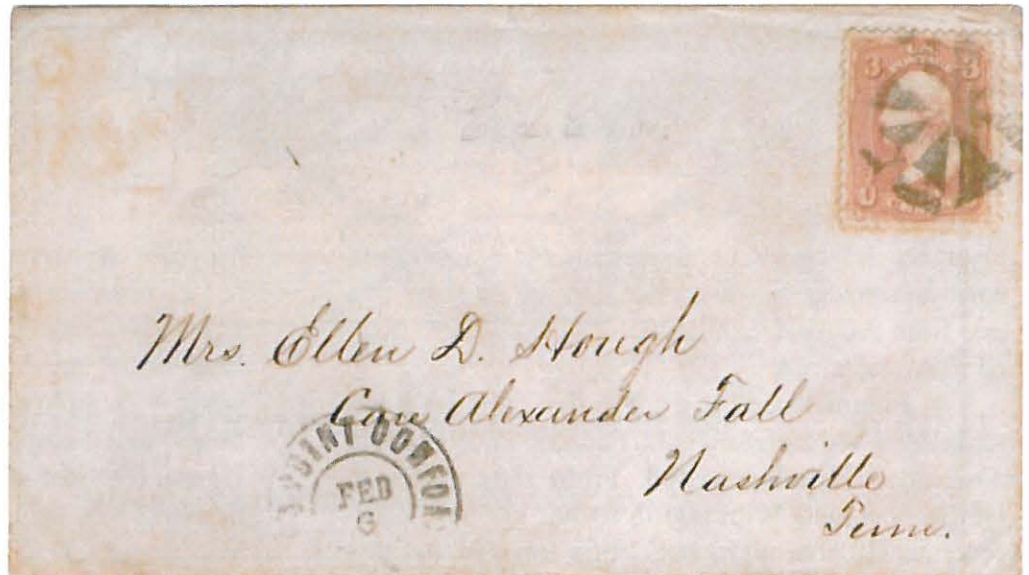 U.S.
POSTAGE
3 3
Mrs. Ellen D. Hough
Care Alexander Fall
Nashville
Tenn.
POINT COMFO
FEB
6